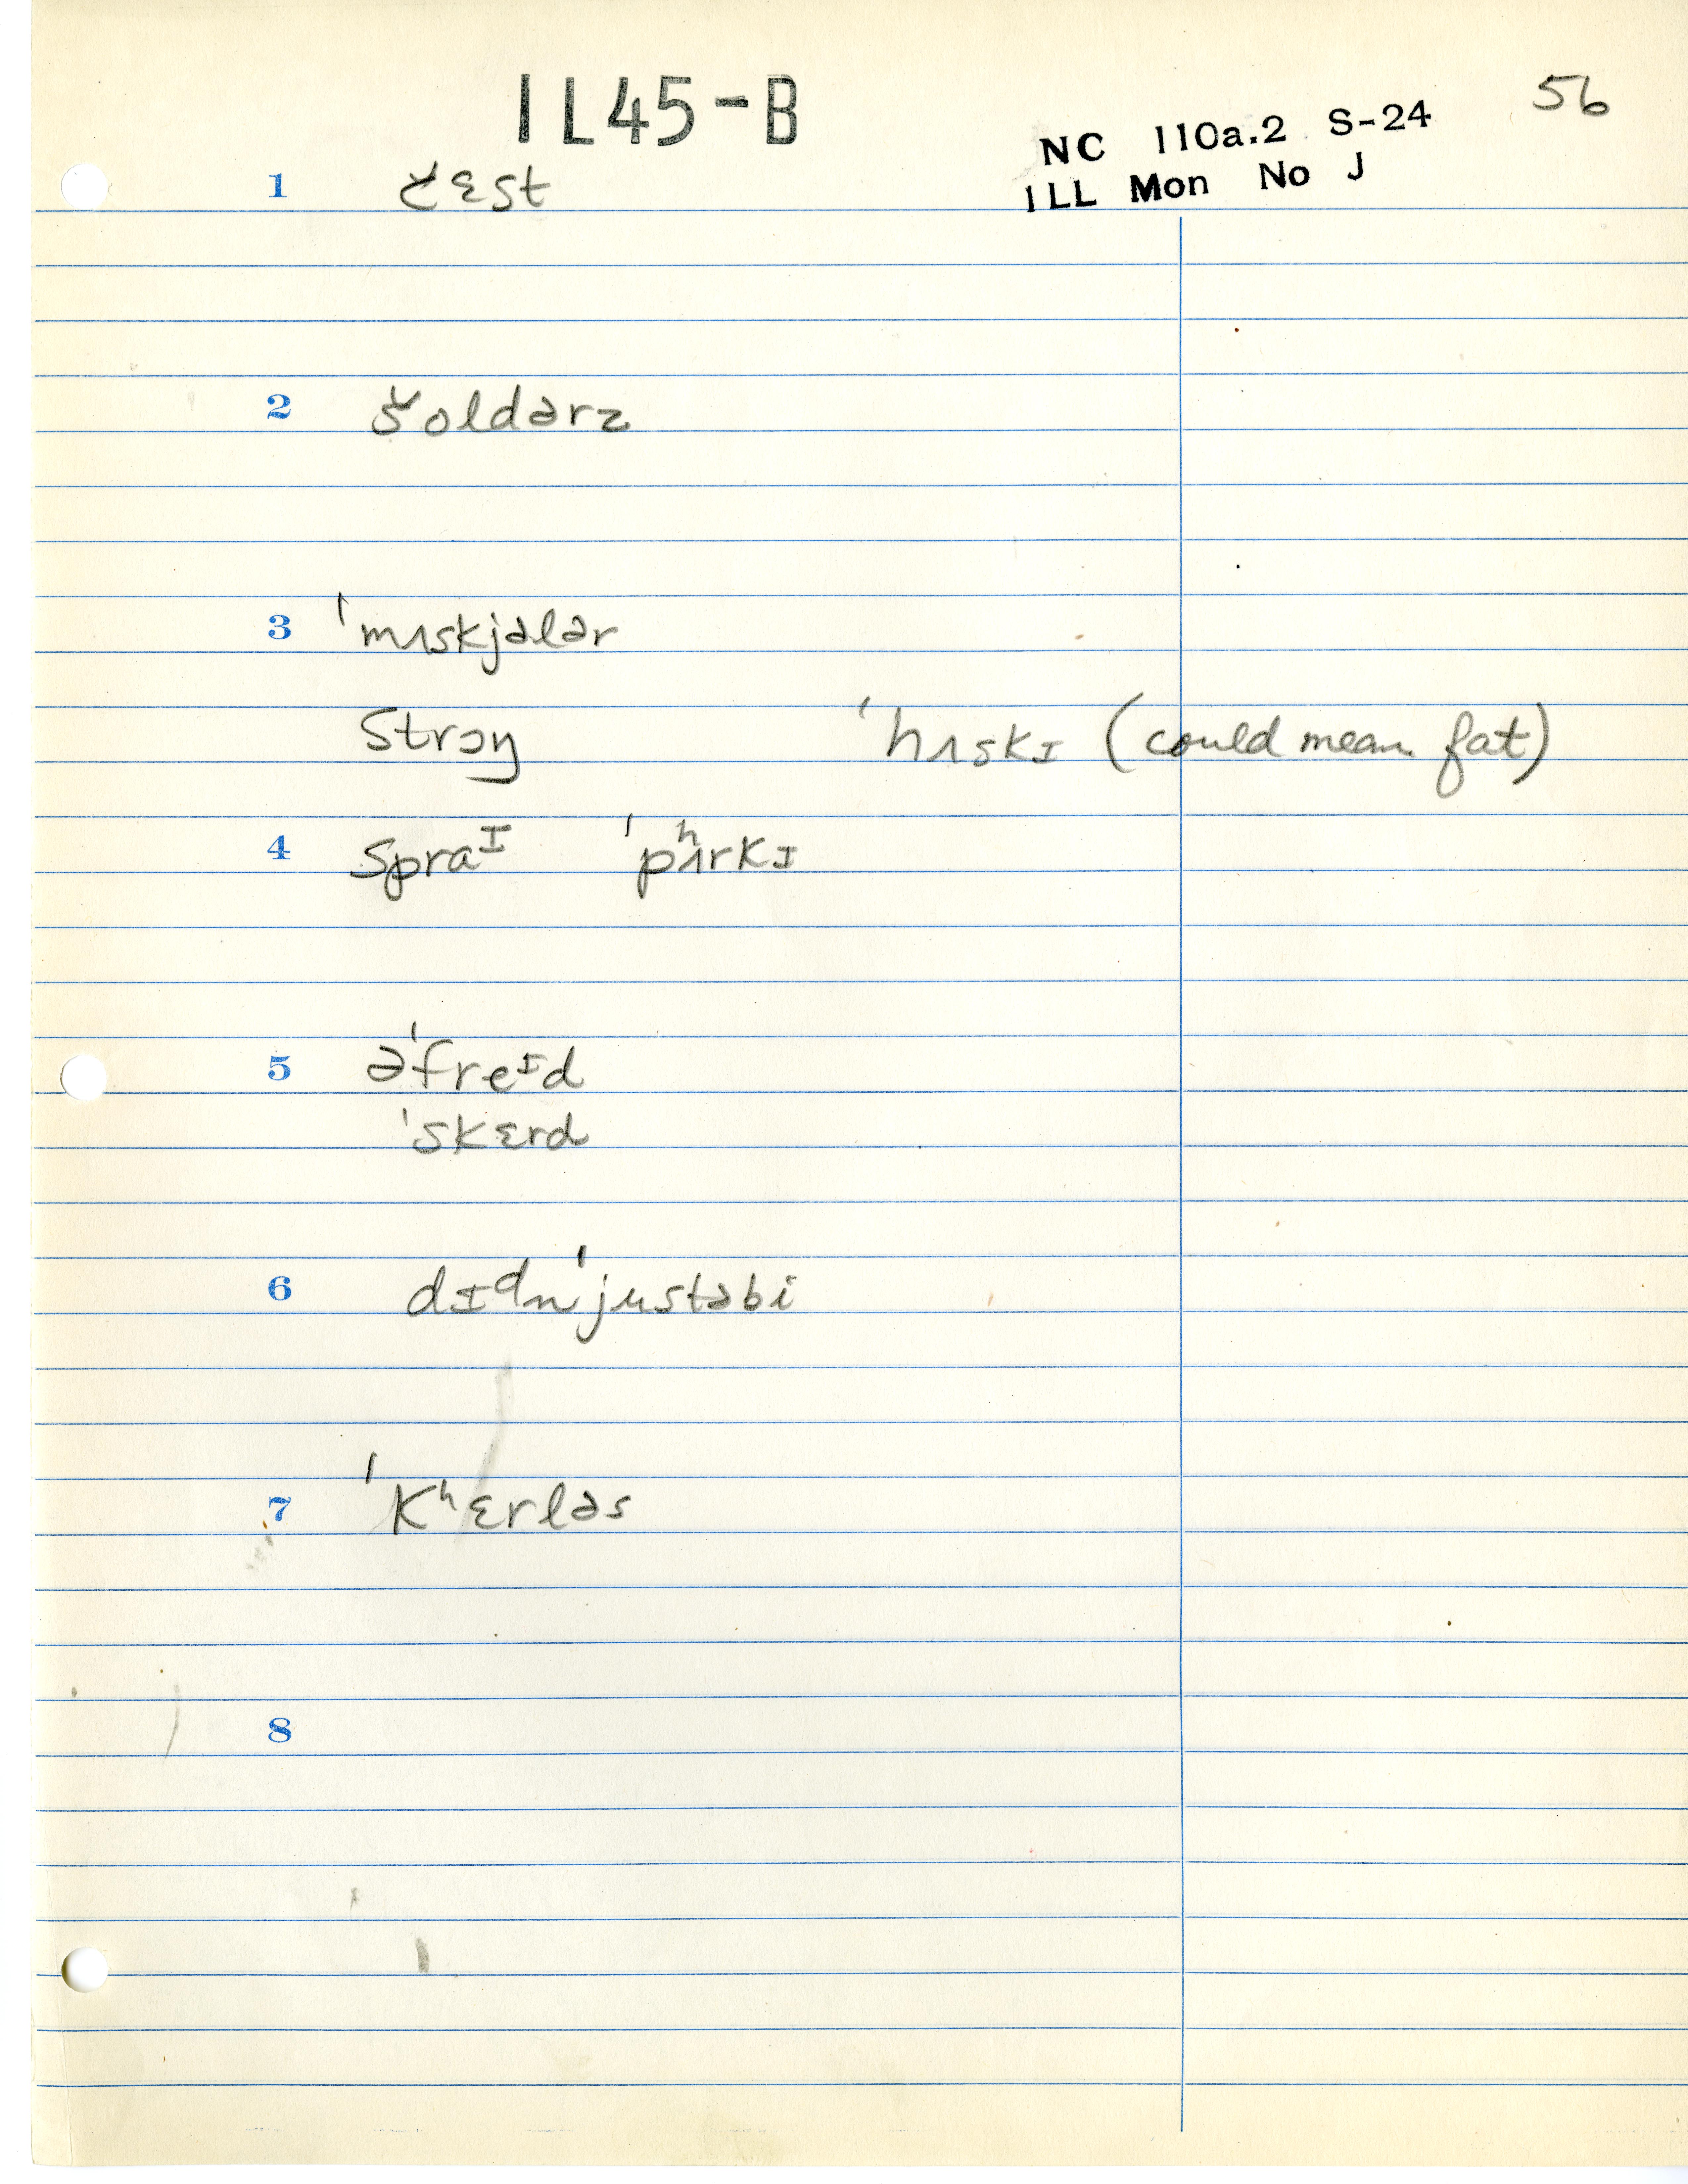 IL45-B
56
NC 110a.2 S-24
ILL Mon No J
1 č̵ɛst
2 šoldərz
3 'mʌskjələr
strɔŋ 'hʌskɪ (could mean fat)
4 spraᶦ 'pʰʌrkɪ
5 ə'freᶦd
'skɛrd
6 dɪᵈn'justəbi
7 'kʰɛrləs
8